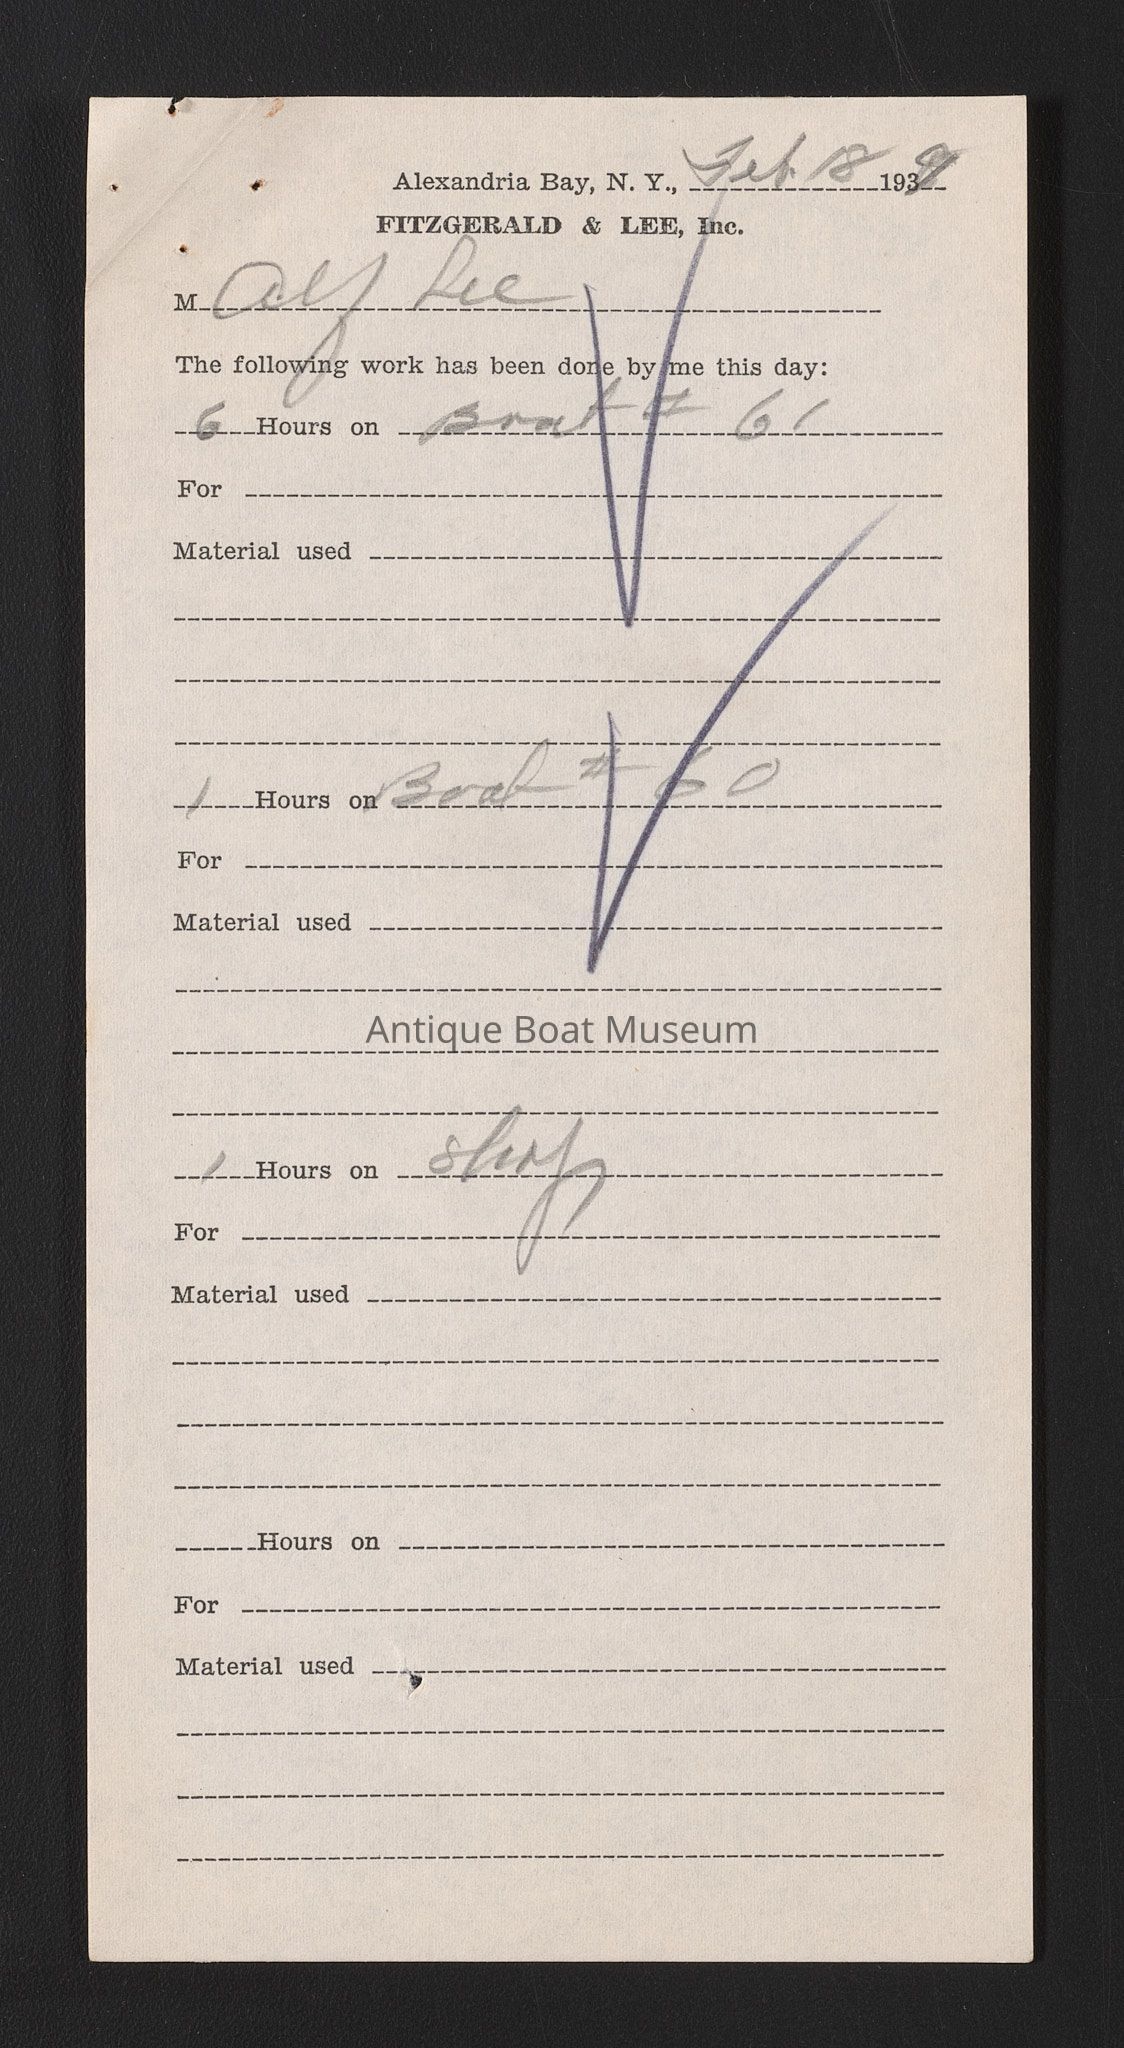 Alexandria Bay, N. Y., Feb. 18 1939
FITZGERALD & LEE, Inc.
M Alf Lee
The following work has been done by me this day:
6 Hours on Boat # 61
For
Material used
1 Hours on Boat # 60
For
Material used
Antique Boat Museum
1 Hours on Shop
For
Material used
Hours on
For
Material used